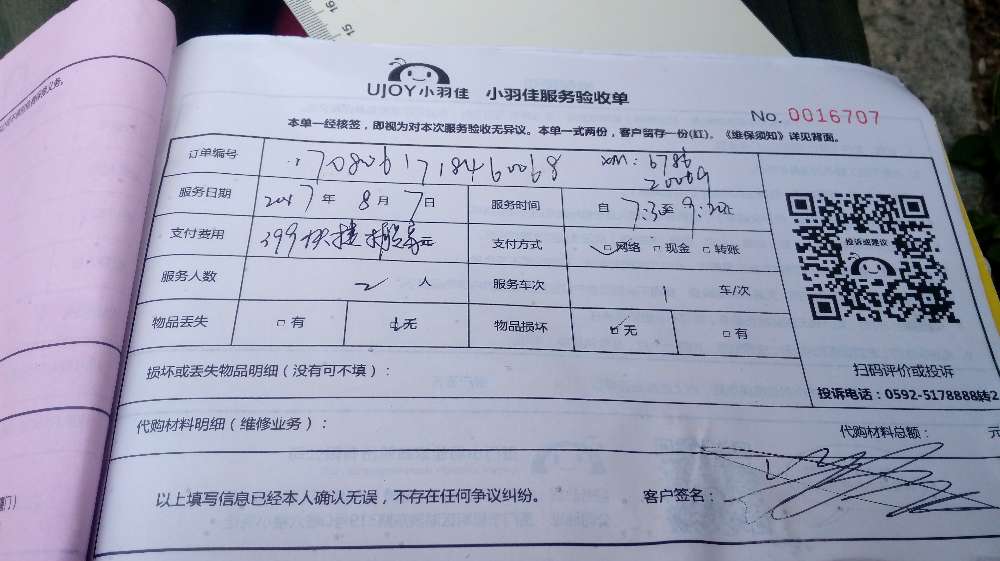 15
16
UJOY小羽佳 小羽佳服务验收单
No. 0016707
本单一经核签，即视为对本次服务验收无异议。本单一式两份，客户留存一份(红)，《维保须知》详见背面。
订单编号 1708061718460068 XM: 6786
20069
服务日期 2017年 8月 7日 服务时间 自 7:30至 9:30止
支付费用 399 元 支付方式 □网络 □现金 □转账
服务人数 2 人 服务车次 1 车/次
物品丢失 □有 □无 物品损坏 □无 □有
投诉或建议
扫码评价或投诉
投诉电话：0592-5178888转2
损坏或丢失物品明细（没有可不填）：
代购材料明细（维修业务）： 代购材料总额： 元
以上填写信息已经本人确认无误，不存在任何争议纠纷。 客户签名：